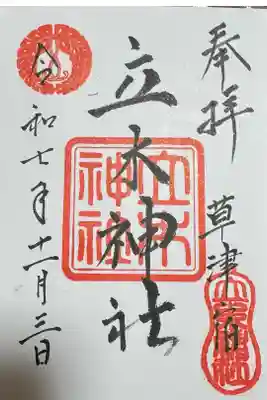 奉拝
草津宿
立木神社
立木神社
令和七年十一月三日